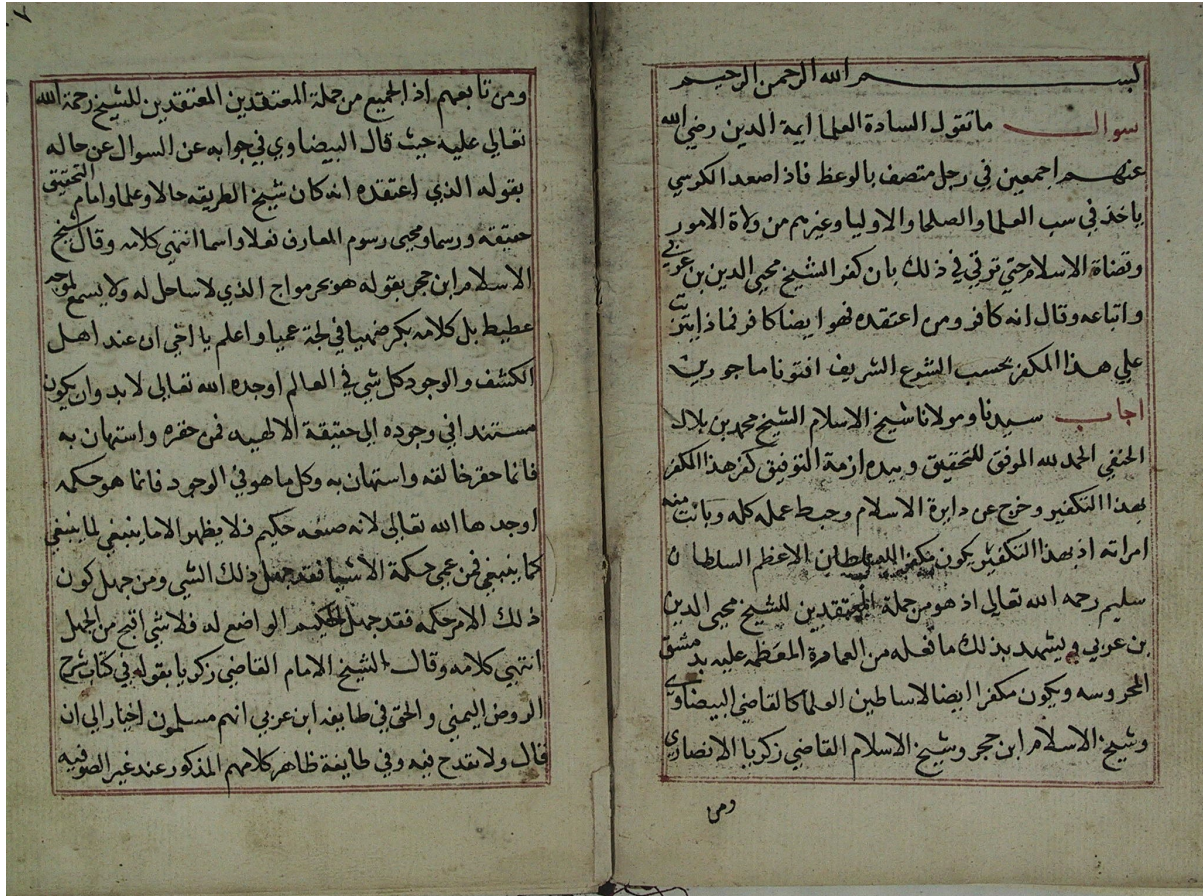 بسم الله الرحمن الرحيم
سوال ما تقول السادة العلما ايمة الدين رضي الله
عنهم اجمعين في رجل متصف بالوعظ فاذا صعد الكرسي
ياخذ في سب العلما والصلحا والاوليا وغيرهم من ولاة الامور
وقضاة الاسلام حتي ترقي في ذلك بان كفر الشيخ محيي الدين بن عربي
واتباعه وقال انه كافر ومن اعتقده فهو ايضا كافر فماذا يترتب
علي هذا المكفر بحسب الشرع الشريف افتونا ماجورين
اجاب سيدنا ومولانا شيخ الاسلام الشيخ محمد بن بلال
الحنفي الحمد لله الموفق للتحقيق وبيده ازمة التوفيق كفر هذا المكفر
بهذا التكفير وخرج عن دايرة الاسلام وحبط عمله كله وبانت منه
امراته اذ بهذا التكفير يكون مكفرا للسلطان الاعظم السلطان
سليم رحمه الله تعالى اذ هو من جملة المعتقدين للشيخ محيي الدين
بن عربي ويشهد بذلك ما فعله من العمارة المعظمه عليه بدمشق
المحروسه ويكون مكفرا ايضا لاساطين العلما كالقاضي البيضاوي
وشيخ الاسلام ابن حجر وشيخ الاسلام القاضي زكريا الانصاري
ومن
ومن تابعهم اذ الجميع من جملة المعتقدين المعتقدين للشيخ رحمة الله
تعالي عليه حيث قال البيضاوي في جوابه عن السوال عن حاله
بقوله الذي اعتقده انه كان شيخ الطريقه حالا وعلما وامام التحقيق
حقيقه ورسما ومحيي رسوم المعارف فعلا واسما انتهى كلامه وقال شيخ
الاسلام ابن حجر بقوله هو بحر مواج الذي لا ساحل له ولا يسمع لموجه
غطيط بل كلامه بكر صهبا في لجة عميا واعلم يا اخي ان عند اهل
الكشف والوجود كل شي في العالم اوجده الله تعالى لا بد وان يكون
مستندا في وجوده الى حقيقة الالهيه فمن حقره واستهان به
فانما حقر خالقه واستهان به وكل ما هو في الوجود فانما هو حكمه
اوجدها الله تعالى لانه صنعه حكيم فلا يظهر الا ما ينبغي لما ينبغي
كما ينبغي فمن عمي حكمة الاشيا فقد جهل ذلك الشي ومن جهل كون
ذلك الامر حكمه فقد جهل الحكيم الواضع له فلا شي اقبح من الجهل
انتهى كلامه وقال الشيخ الامام القاضي زكريا بقوله في كتاب شرح
الروض اليمني والحق في طايفه ابن عربي انهم مسلمون اخيار الى ان
قال ولا يقدح فيه وفي طايفة ظاهر كلامهم المذكور عند غير الصوفيه